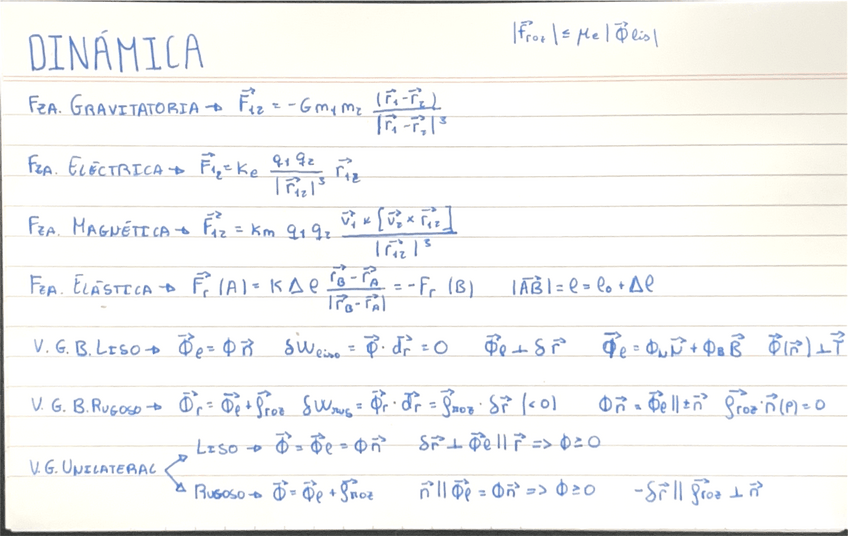 |f⃗roz| ≤ μe |Φ⃗lis|
DINÁMICA
FZA. GRAVITATORIA → F⃗12 = -G m1 m2 (r⃗1 - r⃗2) / |r⃗1 - r⃗2|³
FZA. ELÉCTRICA → F⃗12 = Ke q1 q2 / |r⃗12|³ r⃗12
FZA. MAGNÉTICA → F⃗12 = Km q1 q2 v⃗1 × [v⃗2 × r⃗12] / |r⃗12|³
FZA. ELÁSTICA → F⃗r (A) = K Δℓ (r⃗B - r⃗A) / |r⃗B - r⃗A| = -Fr (B) |AB⃗| = ℓ = ℓ0 + Δℓ
V. G. B. LISO → Φ⃗ℓ = Φn⃗ δWliso = Φ⃗ · d⃗r = 0 Φ⃗ℓ ⊥ δr⃗ Φ⃗ℓ = ΦN N⃗ + ΦB B⃗ Φ⃗(n⃗) ⊥ T⃗
V. G. B. RUGOSO → Φ⃗r = Φ⃗ℓ + f⃗roz δWrug = Φ⃗r · d⃗r = f⃗roz · δr⃗ (<0) Φn⃗ = Φ⃗ℓ || ±n⃗ f⃗roz · n⃗(P) = 0
V. G. UNILATERAL
LISO → Φ⃗ = Φ⃗ℓ = Φn⃗ δr⃗ ⊥ Φ⃗ℓ || r⃗ => Φ ≥ 0
RUGOSO → Φ⃗ = Φ⃗ℓ + f⃗roz n⃗ || Φ⃗ℓ = Φn⃗ => Φ ≥ 0 -δr⃗ || f⃗roz ⊥ n⃗